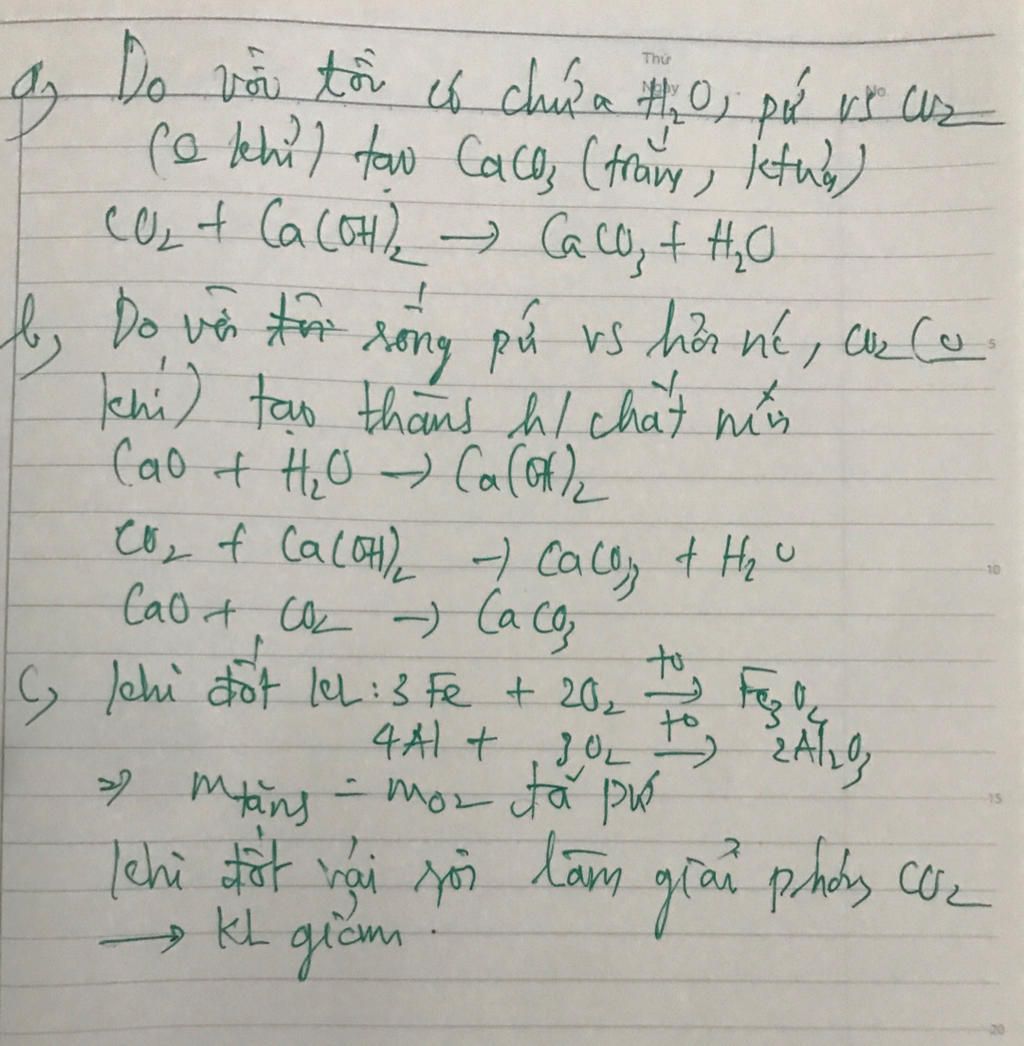 Thứ
Ngày No.
a, Do vôi tôi có chứa H₂O, pứ vs CO₂
(o khí) tạo CaCO₃ (trắng, ktủa)
CO₂ + Ca(OH)₂ → CaCO₃ + H₂O
b, Do vôi tôi sống pứ vs hơi nc, CO₂ (o
khí) tạo thành h/chất mới
CaO + H₂O → Ca(OH)₂
CO₂ + Ca(OH)₂ → CaCO₃ + H₂O
CaO + CO₂ → CaCO₃
c, Khi đốt KL: 3Fe + 2O₂ →(t⁰) Fe₃O₄
4Al + 3O₂ →(t⁰) 2Al₂O₃
=> m tăng = mO₂ đã pứ
Khi đốt vải sợi làm giải phóng CO₂
→ KL giảm.
5
10
15
20